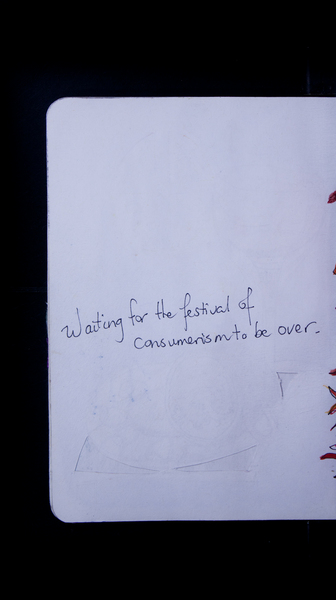 Waiting for the festival of
Consumerism to be over.